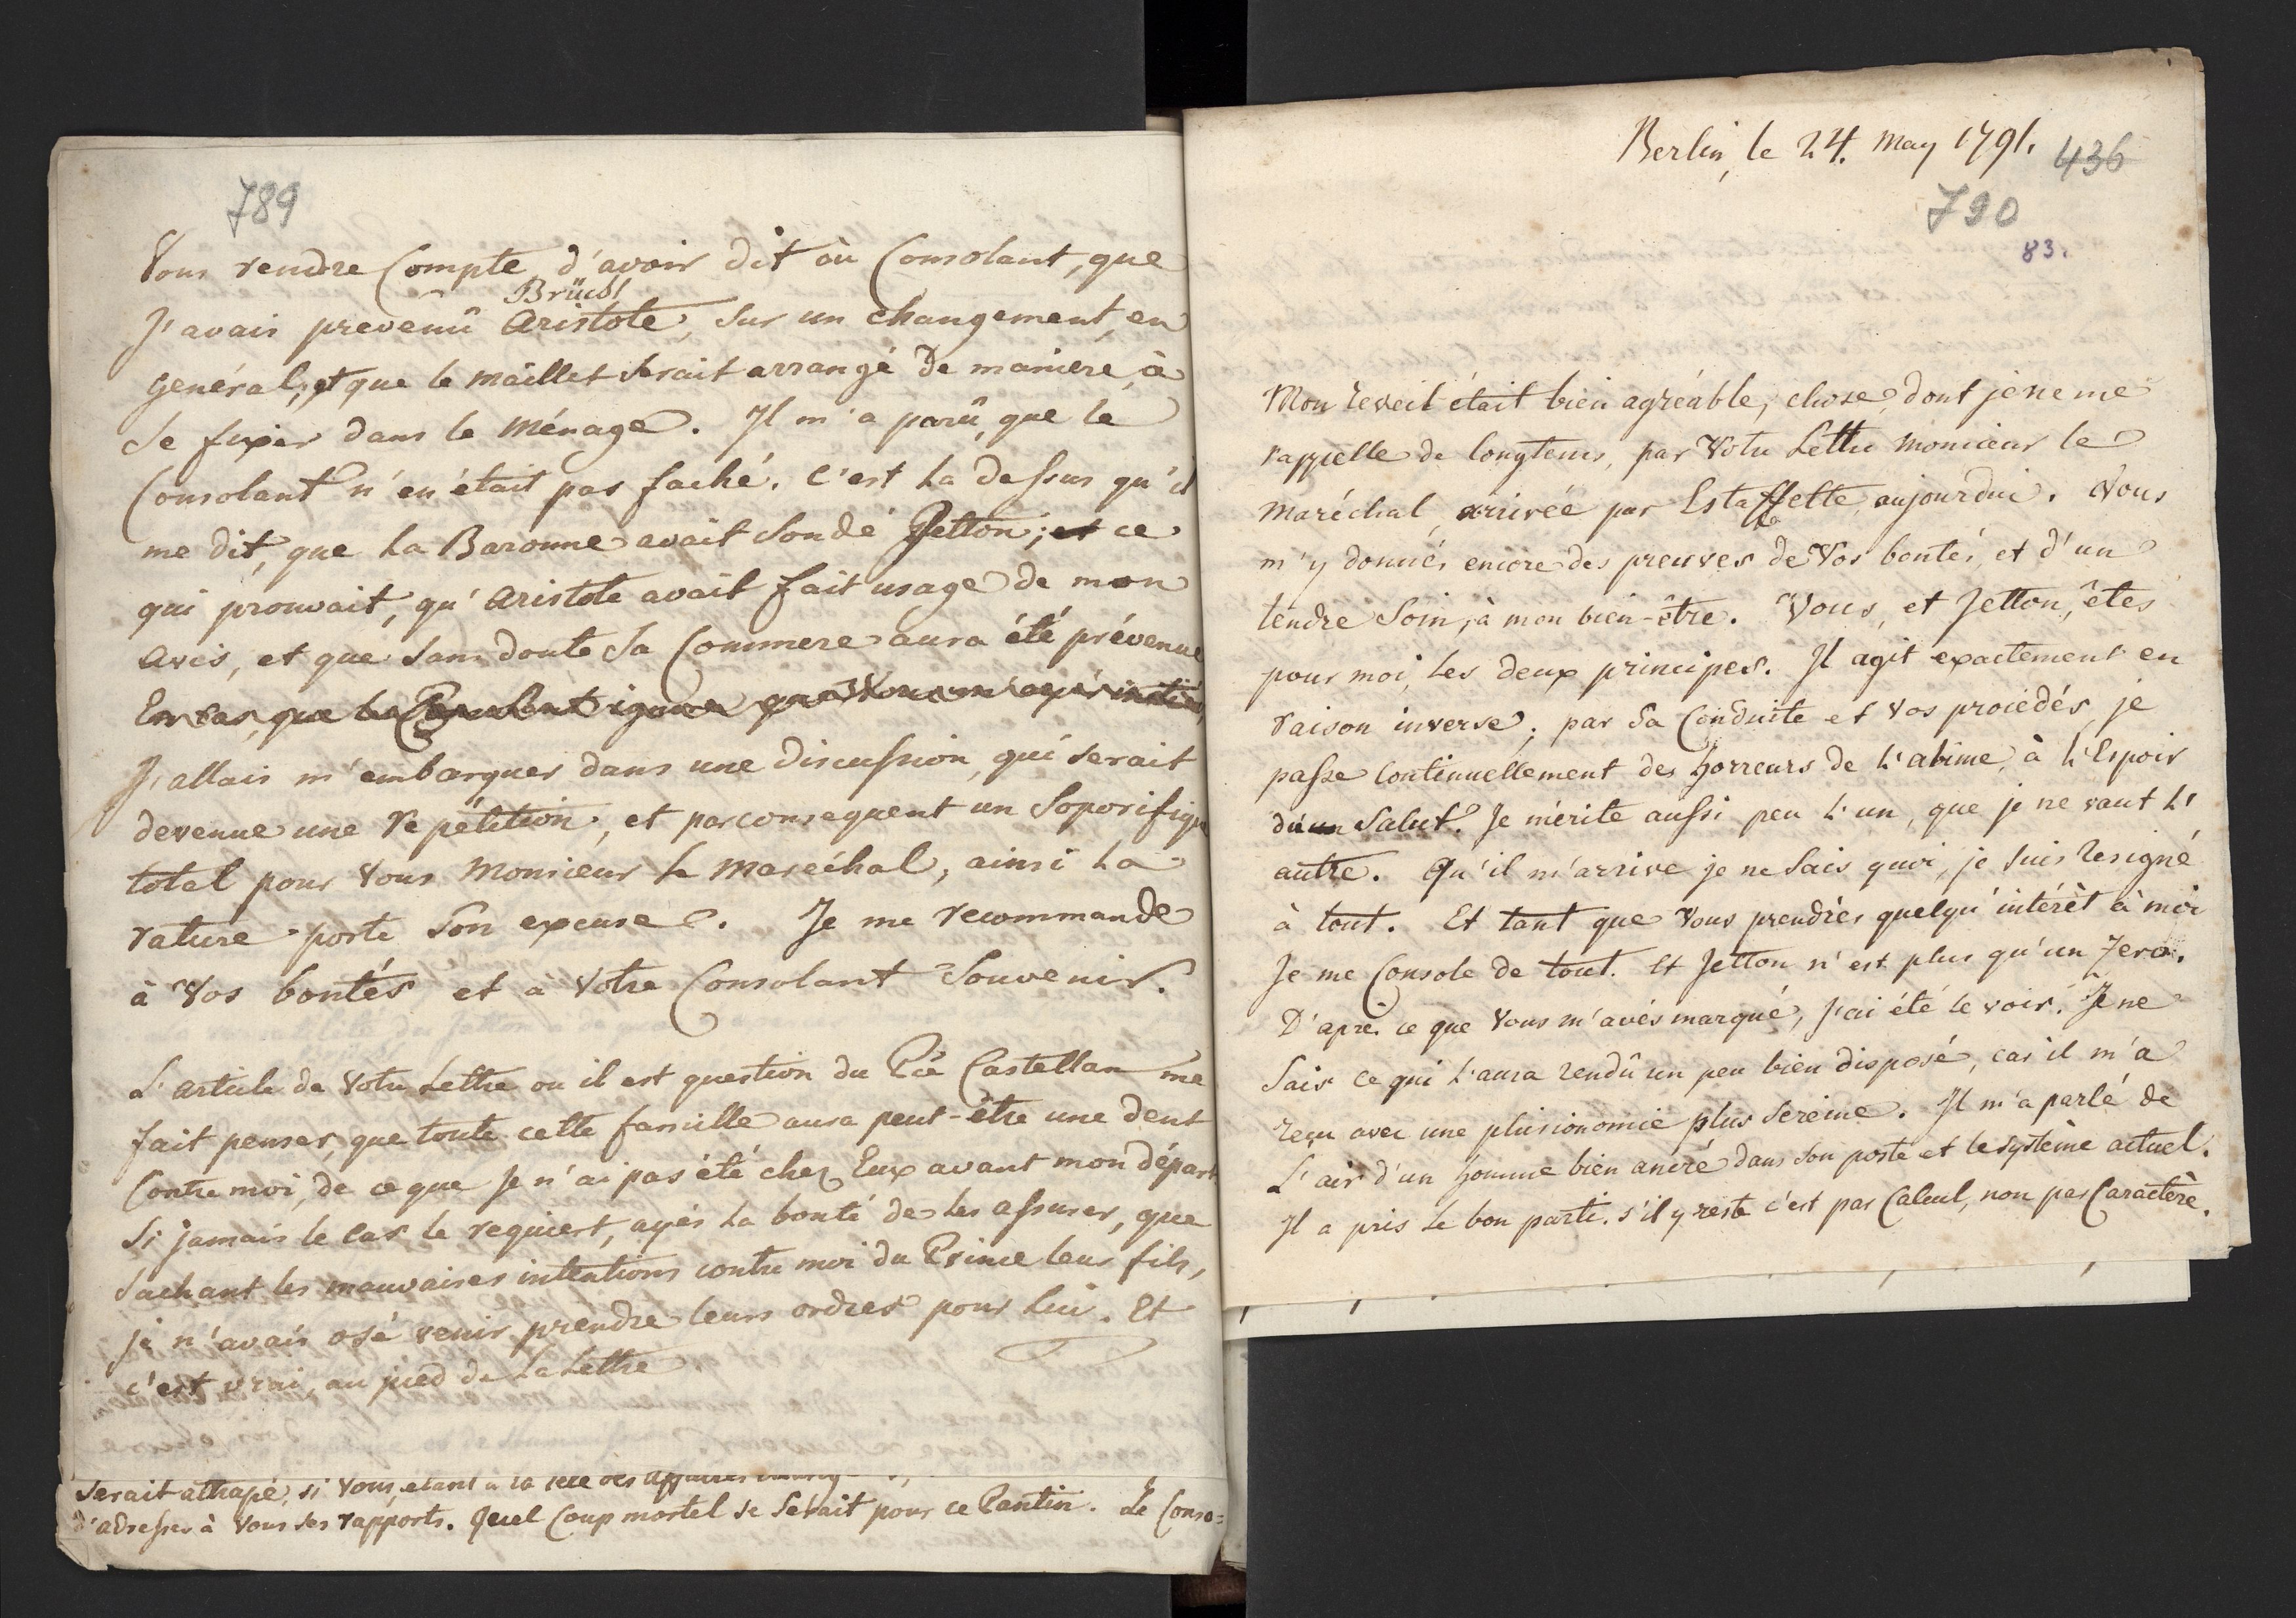 789
Vous rendre Compte, d'avoir dit au Consolant, que
Brüchl
J'avais prevenû Aristote, sur un changement, en
général; et que le maillet serait arrangé de maniere, à
se fixer dans le ménage. Il m'a parû, que le
Consolant n'en était pas faché. C'est la dessus qu'il
me dit, que la Baronne avait sondé Jetton; et ce
qui prouvait, qu'Aristote avait fait usage de mon
avis, et que sans doute sa Commere aura été prévenue
En cas, que le Consolant ignore que Vous m'ayés initié,
J'allais m'embarquer dans une discussion, qui serait
devenue une repétition, et parconsequent un Soporifique
total pour Vous Monsieur le Maréchal, ainsi la
rature porte son excuse. Je me recommande
à Vos bontés et à Votre Consolant Souvenir.
L'article de Votre Lettre ou il est question du Pce Castellan me
fait penser, que toute cette famille aura peut-être une dent
Contre moi, de ce que Je n'ai pas été chez Eux avant mon départ
Si jamais le cas le requiert, ayés la bonté de les assurer, que
Sachant les mauvaises intentions contre moi du Prince leur fils,
je n'avais osé venir prendre leurs ordres pour Lui. Et
c'est vrai, au pied de la Lettre
Serait attrapé, si Vous, etant a la tete des affaires
d'adresser à Vous ses rapports. Quel Coup mortel se serait pour ce Pantin. Le Conso=
Berlin, le 24. May 1791.
436
790
83.
Mon reveil était bien agréable, chose, dont je ne me
rappelle de longtems, par Votre Lettre Monsieur le
Maréchal, arrivée par Estaffette, aujourdui. Vous
m'y donnés encore des preuves de Vos bontés, et d'un
tendre Soin, à mon bien-être. Vous, et Jetton, êtes
pour moi, les deux principes. Il agit exactement en
raison inverse; par sa Conduite et Vos procédés, je
passe Continuellement des horreurs de l'abime, à l'Espoir
du Salut. Je mérite aussi peu l'un, que je ne vaut l'
autre. Qu'il m'arrive je ne sais quoi, je suis resigné
à tout. Et tant que Vous prendrés quelqu'intérêt à moi
Je me Console de tout. Et Jetton n'est plus qu'un Zero.
D'après ce que Vous m'avés marqué, J'ai été le voir. Je ne
Sais ce qui l'aura rendû un peu bien disposé, car il m'a
reçu avec une phisionomie plus sereine. Il m'a parlé de
L'air d'un homme bien ancré dans son poste et le système actuel.
Il a pris le bon parti. s'il y reste c'est par Calcul, non par Caractère.